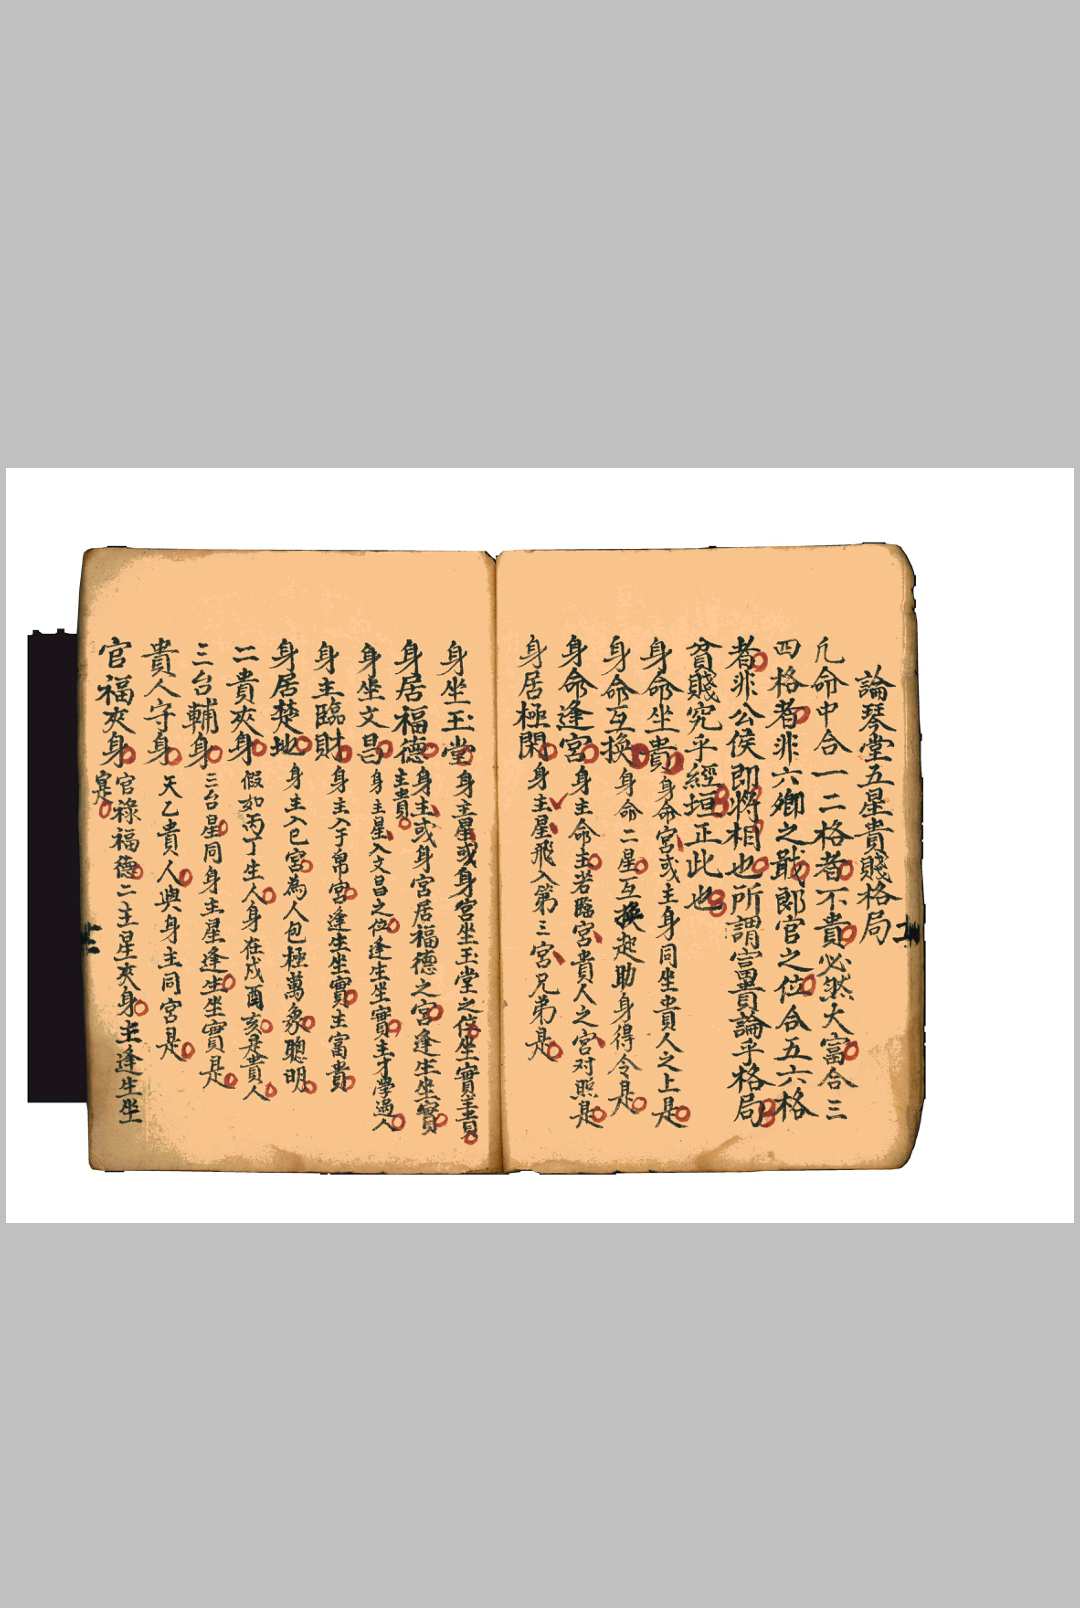 論琴堂五星貴賤格局
凢命中合一二格者不貴必然大富合三
四格者非六卿之戢郎官之位合五六格
者非公侯即將相也所謂富貴論乎格局
貧賤究乎經垣正此也
身命坐貴身命宮或主身同坐貴人之上是
身命互換身命二星互換起助身得令是
身命逢宮身主命主若臨宮貴人之宮对照是
身居極閑身主星飛入第三宮兄弟是
身坐玉堂身主星或身宮坐玉堂之位坐實主貴
身居福德身主或身宮居福德之宮逢生坐實
主貴
身坐文昌身主星入文昌之位逢生坐實主才學過人
身主臨財身主入于帛宮逢生坐實主富貴
身居楚地身主入巳宮為人包極萬象聰明
二貴夾身假如丙丁生人身在戌酉亥是貴人
三台輔身三台星同身主星逢生坐實是
貴人守身天乙貴人與身主同宮是
官福夾身官祿福德二主星夾身主逢生坐
實是